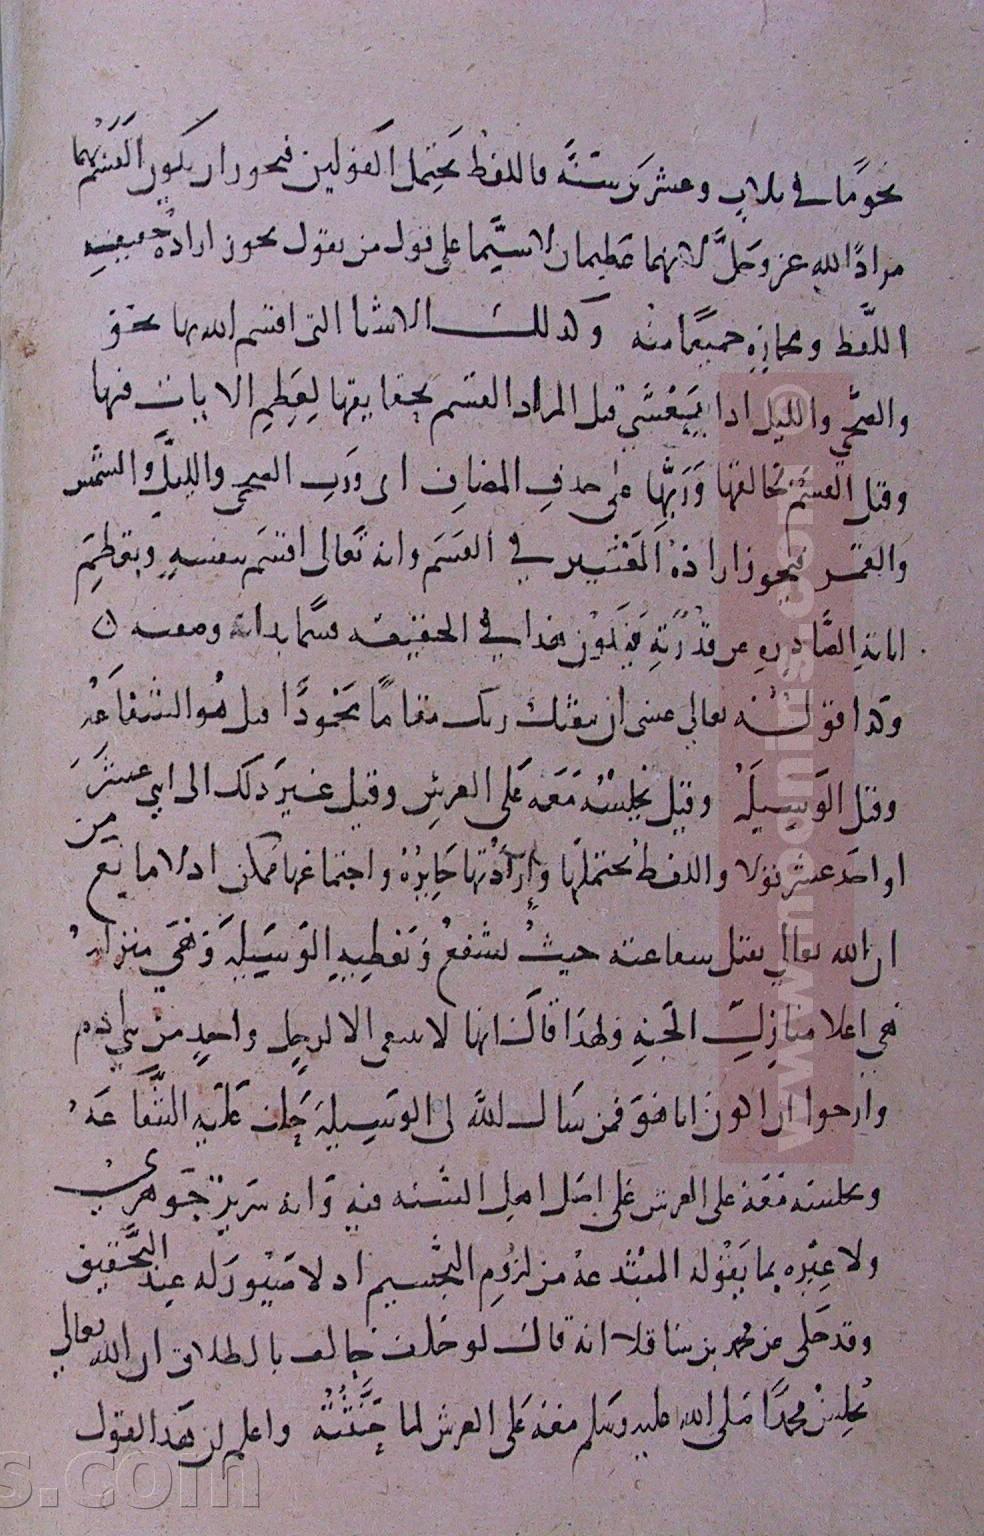 نحوًا في ثلاث وعشرين سنة فاللفظ يحتمل القولين فيجوز ان يكون القسم بهما
مرادًا لله عز وجل لانهما عظيمان لا سيما على قول من يقول يجوز ارادة حقيقة
اللفظ ومجازه جميعًا منه وكذلك الاشيا التى اقسم الله بها نحو
والضحى والليل اذا يغشى قيل المراد القسم بحقايقها لعظم الايات فيها
وقيل القسم بخالقها وربها على حذف المضاف اى ورب الضحى والليل والشمس
والقمر فيجوز ارادة في القسم وانه تعالى اقسم بنفسه وبعظيم
اياته الصادره عن قدرته فيكون هذا في الحقيقه قسما بذاته ن
وكذا قوله تعالي عسى ان يبعثك ربك مقامًا محمودًا قيل هو الشفاعة
وقيل الوسيلة وقيل يجلسه معه على العرش وقيل غير ذلك الى اثنى عشر
او احد عشر قولا واللفظ يحتملها وارادتها جايزة واجتماعها ممكن اذ لا مانع من
ان الله تعالي يقبل شفاعته حيث شفع ويعطيه الوسيلة وهي منزلة
هي اعلا منازل الجنه ولهذا قال انها لا تنبغى الا لرجل واحد من بني ادم
وارجوا ان اكون انا هو فمن سال الله لى الوسيلة حلت عليه الشفاعة
ويجلسه معه على العرش على اصل اهل السنه فيه وانه سرير جوهري
ولا عبره بما يقوله المبتدعة من لزوم التجسيم اذ لا عند التحقيق
وقد حكى عن محمد بن شاقلا انه قال لو حلف حالف بالطلاق ان الله تعالي
يجلس محمدًا صلى الله عليه وسلم معه على العرش لما حنثته واعلم ان هذا القول
www.mponins.com ©
s.com